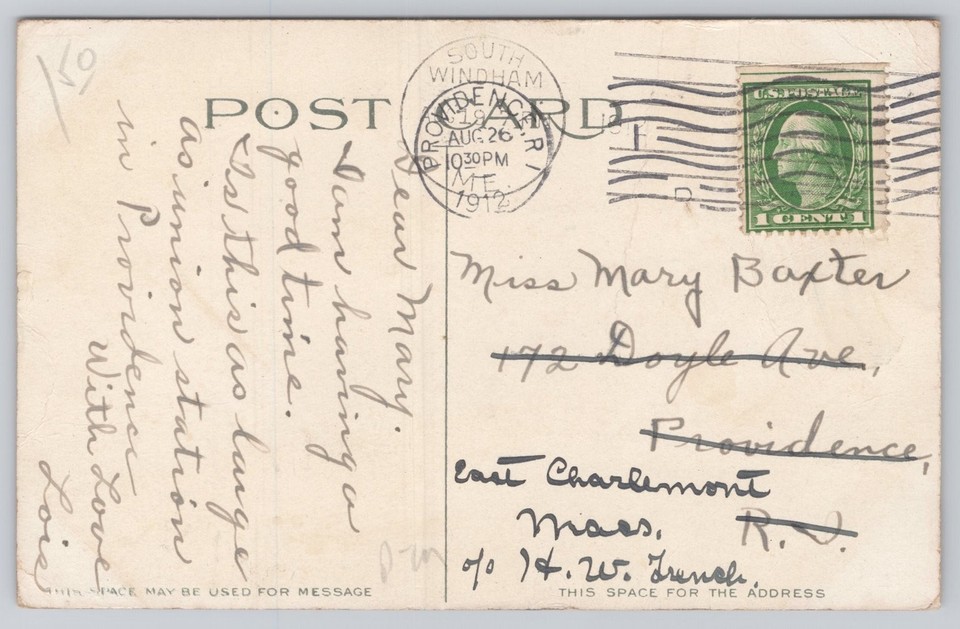 150
POST CARD
SOUTH
WINDHAM
ME.
PROVIDENCE R I
AUG 26
10 30 PM
1912
D
U.S. POSTAGE
1 CENT 1
Dear Mary.
I am having a
good time.
Is this as large
as union station
in Providence
With Love
Lois
Miss Mary Baxter
172 Doyle Ave,
Providence,
R. I.
East Charlemont
Mass.
c/o H. W. French.
THIS SPACE MAY BE USED FOR MESSAGE
THIS SPACE FOR THE ADDRESS